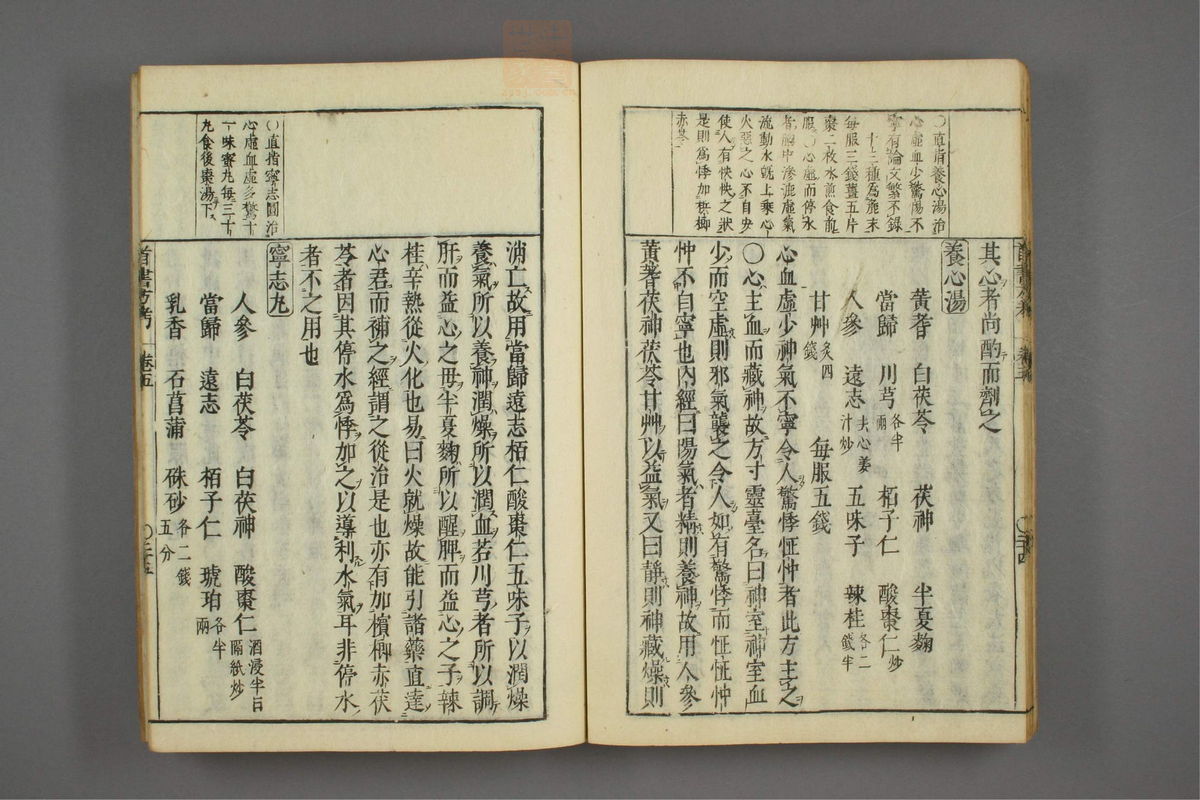 〇直指養心湯治
心虛血少驚惕不
寧有論文繁不錄
十三種爲麁末
每服三錢薑五片
棗二枚水煎食前
服〇心虛而停水
者胸中滲漉虛氣
流動水旣上乘心
火惡之心不自安
使人有怏怏之狀
是則爲悸加梹榔
赤茯
其心者尚酌而劑之
養心湯
黃耆 白茯苓 茯神 半夏麴
當歸 川芎各半兩 栢子仁 酸棗仁炒
人參 遠志去心姜汁炒 五味子 辣桂各二錢半
甘艸炙四錢 每服五錢
心血虛少神氣不寧令人驚悸怔忡者此方主之
〇心主血而藏神故方寸靈臺名曰神室神室血
少而空虛則邪氣襲之令人如有驚悸而怔怔忡
忡不自寧也內經曰陽氣者精則養神故用人參
黃耆茯神茯苓甘艸以益氣又曰靜則神藏燥則
首書方考 卷五 〇三十四
〇直指寧志圓治
心虛血虛多驚十
一味蜜丸每三十
丸食後棗湯下
消亡故用當歸遠志栢仁酸棗仁五味子以潤燥
養氣所以養神潤燥所以潤血若川芎者所以調
肝而益心之母半夏麴所以醒脾而益心之子辣
桂辛熱從火化也易曰火就燥故能引諸藥直達
心君而補之經謂之從治是也亦有加檳榔赤茯
苓者因其停水爲悸加之以導利水氣耳非停水
者不之用也
寧志丸
人參 白茯苓 白茯神 酸棗仁酒浸半日隔紙炒
當歸 遠志 栢子仁 琥珀各半兩
乳香 石菖蒲 硃砂各二錢五分
首書方考 卷五 〇三十五